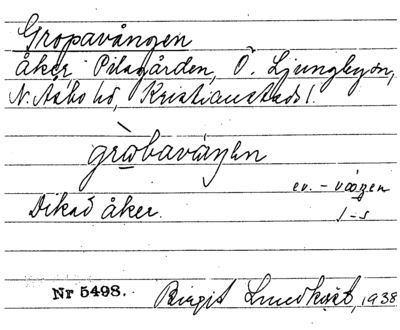 Gropavången
Åker Pilagården, Ö. Ljungby sn,
N. Åsbo hd, Kristianstads l.
gròbavángen
ev. - vången
Dikad åker.
Nr 5498. Birgit Lundkvist, 1938